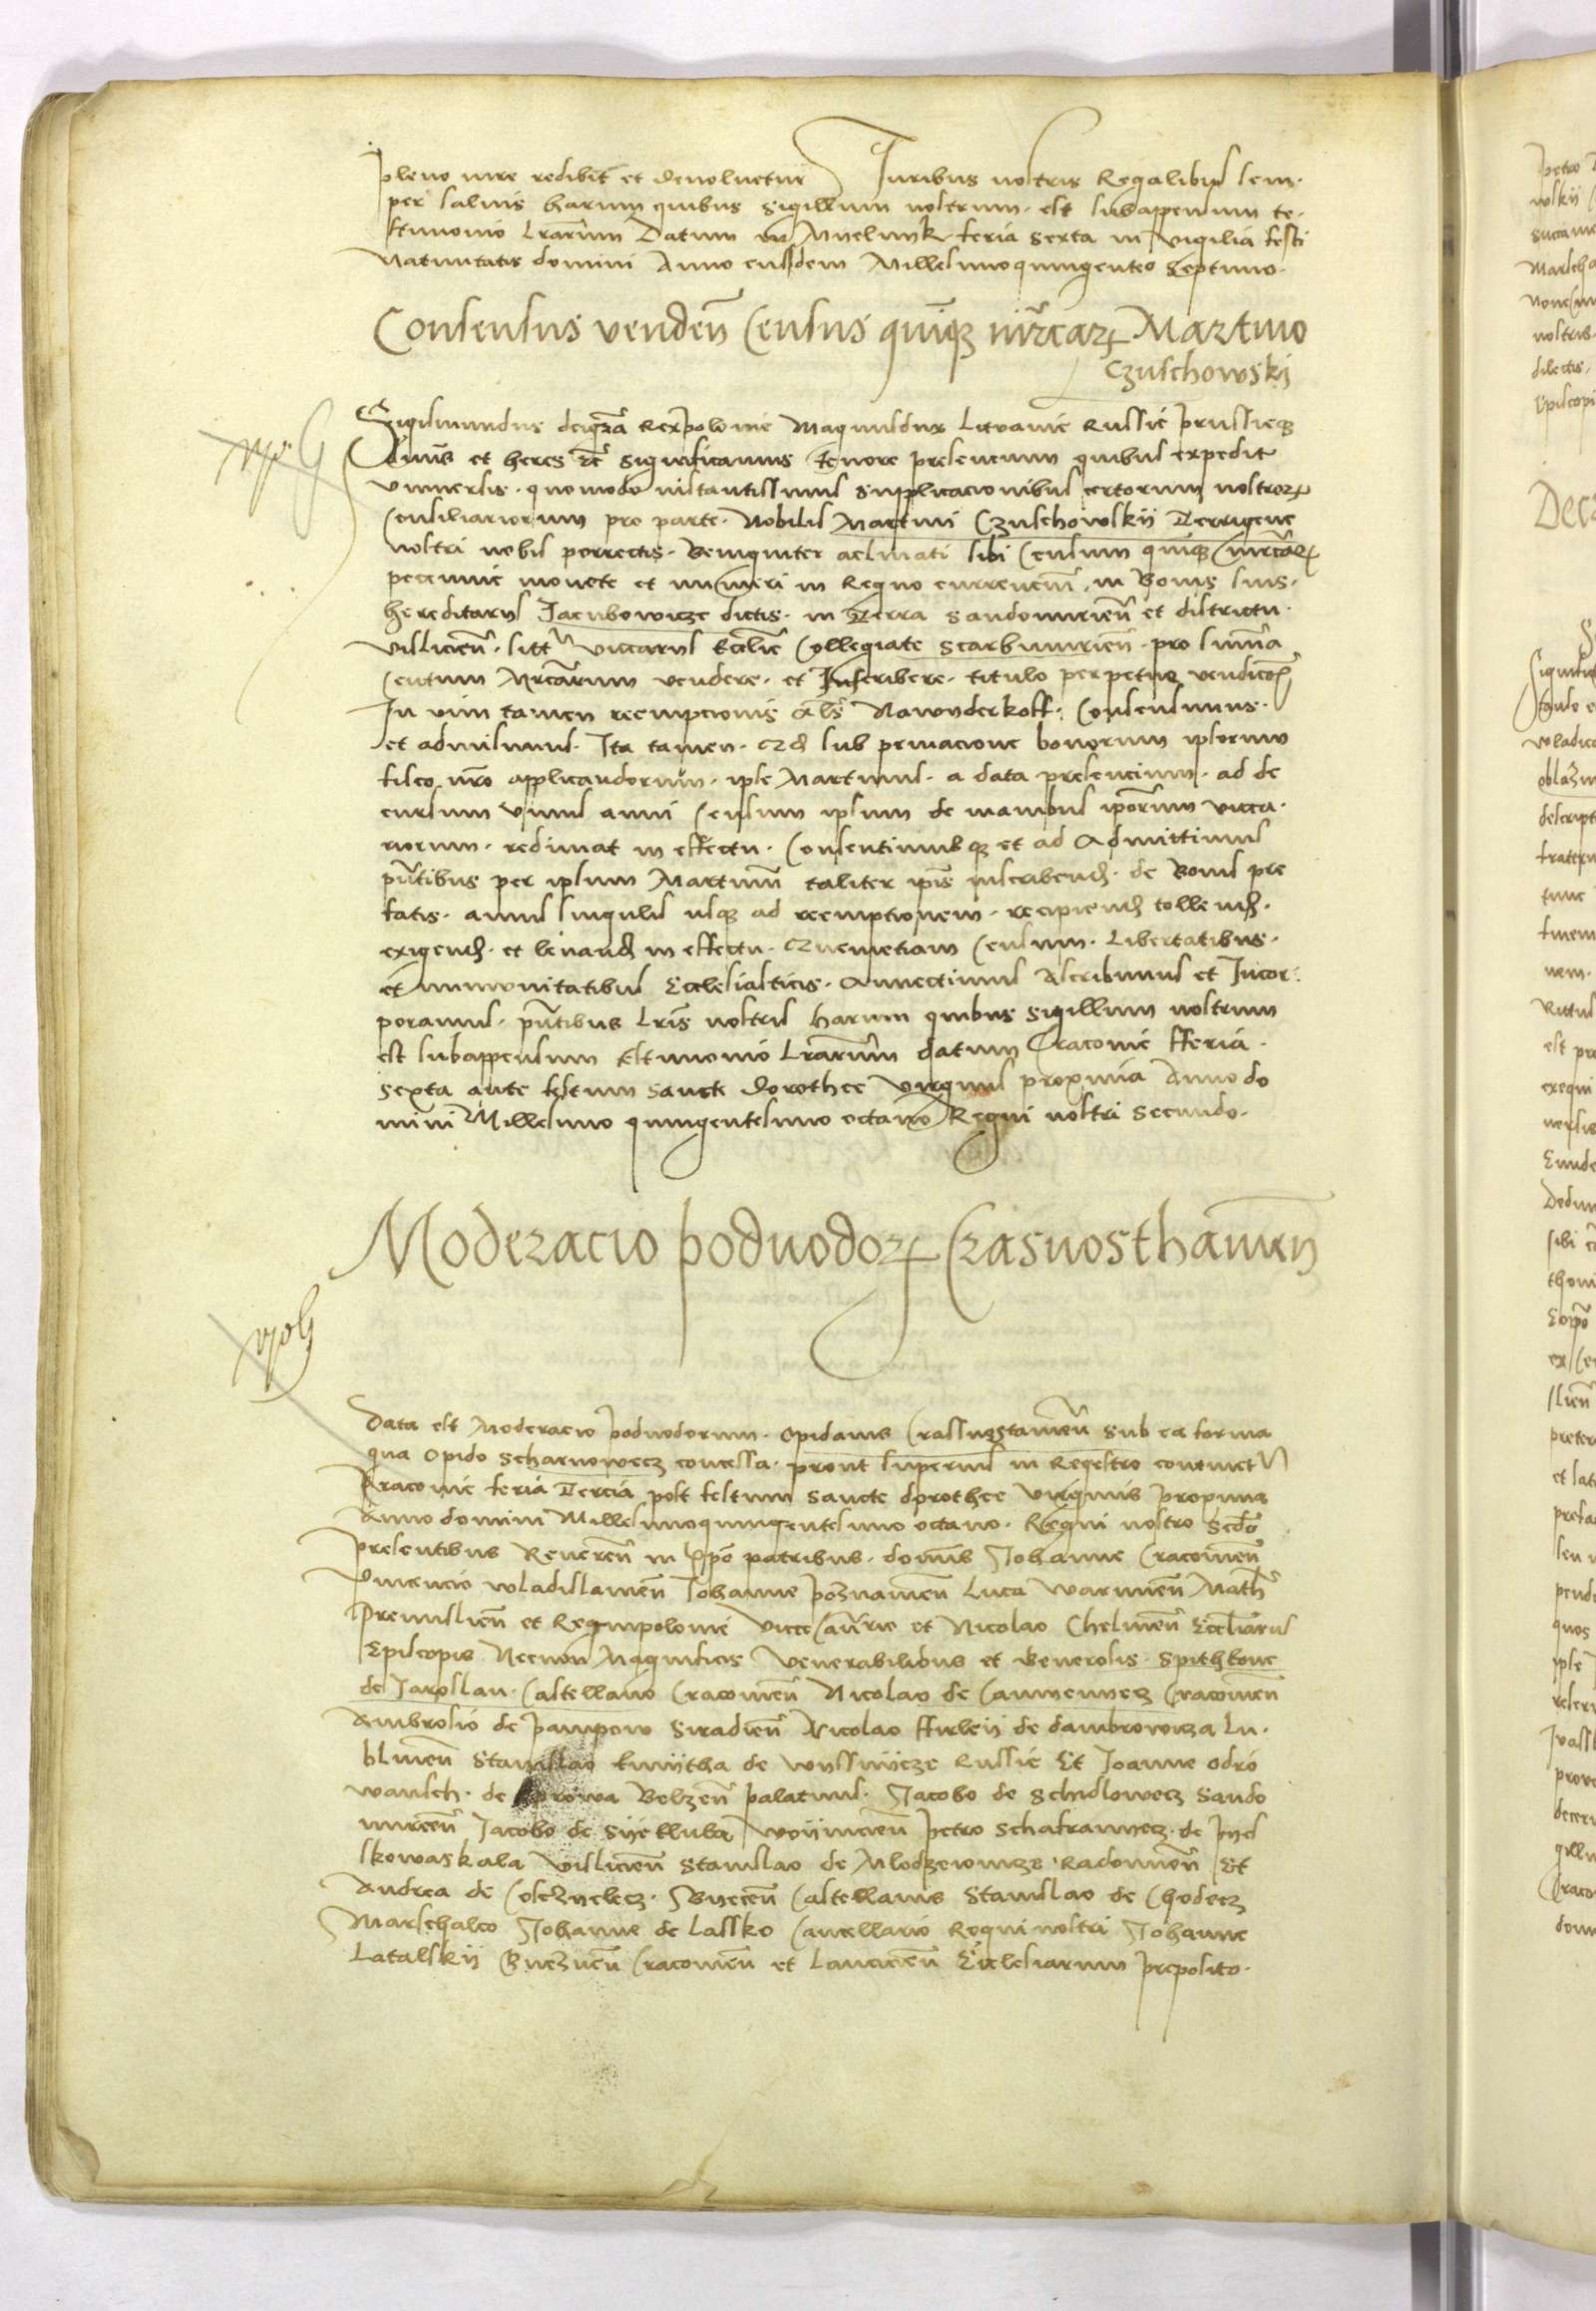 pleno iure redibit et devolvetur Iuribus nostris Regalibus sem-
per salvis harum quibus sigillum nostrum est subappensum te-
stimonio lrarum Datum in Myelnik feria sexta in vigilia festi
Nativitatis domini Anno eiusdem Millesimoquingenteo Septimo
Consensus venden Census quinq mrcar Martino
Czuschowskij
Sigismundus dei gra Rex polonie Magnusdux Litvanie Russie prussieq
dnus et heres etc significamus tenore presencium quibus expedit
universis quomodo instantissimis supplicacionibus certorum nostror
Consiliariorum pro parte Nobilis Martini Czuschowskij Terrigene
nostri nobis porrectis Benigniter aclinati sibi Censum quinq mrcar
pecunie monete et numeri in Regno currencium in Bonis suis
hereditariis Jacubowicze dictis in Terra Sandomirien et districtu
vislicien sitt vicariis Ecclie Collegiate Scarbimirien pro summa
Centum Mrcarum vendere et Inscribere titulo perpetue vendicois
In vim tamen reempcionis als Nawyderkoff Consensimus
et admisimus Ita tamen qd sub privacione bonorum ipsorum
fisco nro applicandorum ipse Martinus a data presencium ad de
cursum unius anni Censum ipsum de manibus iporum vicca-
riorum redimat in effectu Consentimusq et ad Admittimus
pntibus per ipsum Martinum taliter ipis inscribend de Bonis pre
fatis annis singulis usq ad reemptionem recipiend tollend
exigend et levand in effectu Quemetiam Censum Libertatibus
et immunitatibus Ecclesiasticis Annectimus Ascribimus et Incor-
poramus pntibus lris nostris harum quibus sigillum nostrum
est subappensum testimonio lrarum datum Cracovie fferia
sexta ante festum sancte dorothee virginis proxima Anno do
mini Millesimo quingentesimo octavo Regni nostri secundo
Moderacio podvodor Crasnosthavien
Data est Moderacio podvodorum opidanis Crassnostavien sub ea forma
qua opido Scharnowecz concessa prout superius in Regestro continet
Cracovie feria Tercia post festum sancte dorothee virginis proxima
Anno domini Millesimoquingentesimo octavo Regni nostro Scdo
presentibus Reveren in xpo patribus domis Johanne Cracovien
Vincencio wladislavien Johanne poznanien Luca warmien Math
Premislien et Regnipolonie vicecancrio et Nicolao Chelmen Eccliarus
Episcopis Necnon Magnificis Venerabilibus et Generosis Spithkone
de Jaroslau Castellano Cracovien Nicolao de Camyenyecz Cracovien
Ambrosio de pampow Siradien Nicolao ffirleij de dambrowicza Lu-
blinen Stanislao kmijtha de wyssnijcze Russie Et Joanne odro
wansch de Sprowa Belzen palatinis Jacobo de Schidlowecz Sando
mirien Jacobo de Sijekluka woijnicien petro Schafranyecz de pyes
kowaskala vislicien Stanislao de Mlodzeiowicze Radomien Et
Andrea de Coscyelecz Byecen Castellanis Stanislao de Chodecz
Marschalco Johanne de Lassko Cancellario Regni nostri Johanne
Latalskij Gneznen Cracovien et Lancicien Ecclesiarum preposito